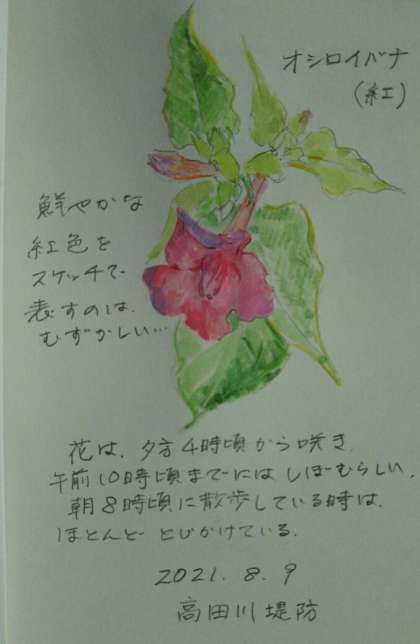 オシロイバナ
(紅)
鮮やかな
紅色を
スケッチで
表すのは、
むずかしい…
花は、夕方4時頃から咲き、
午前10時頃までにはしぼむらしい。
朝8時頃に散歩している時は、
ほとんどとじかけている。
2021.8.9
高田川堤防